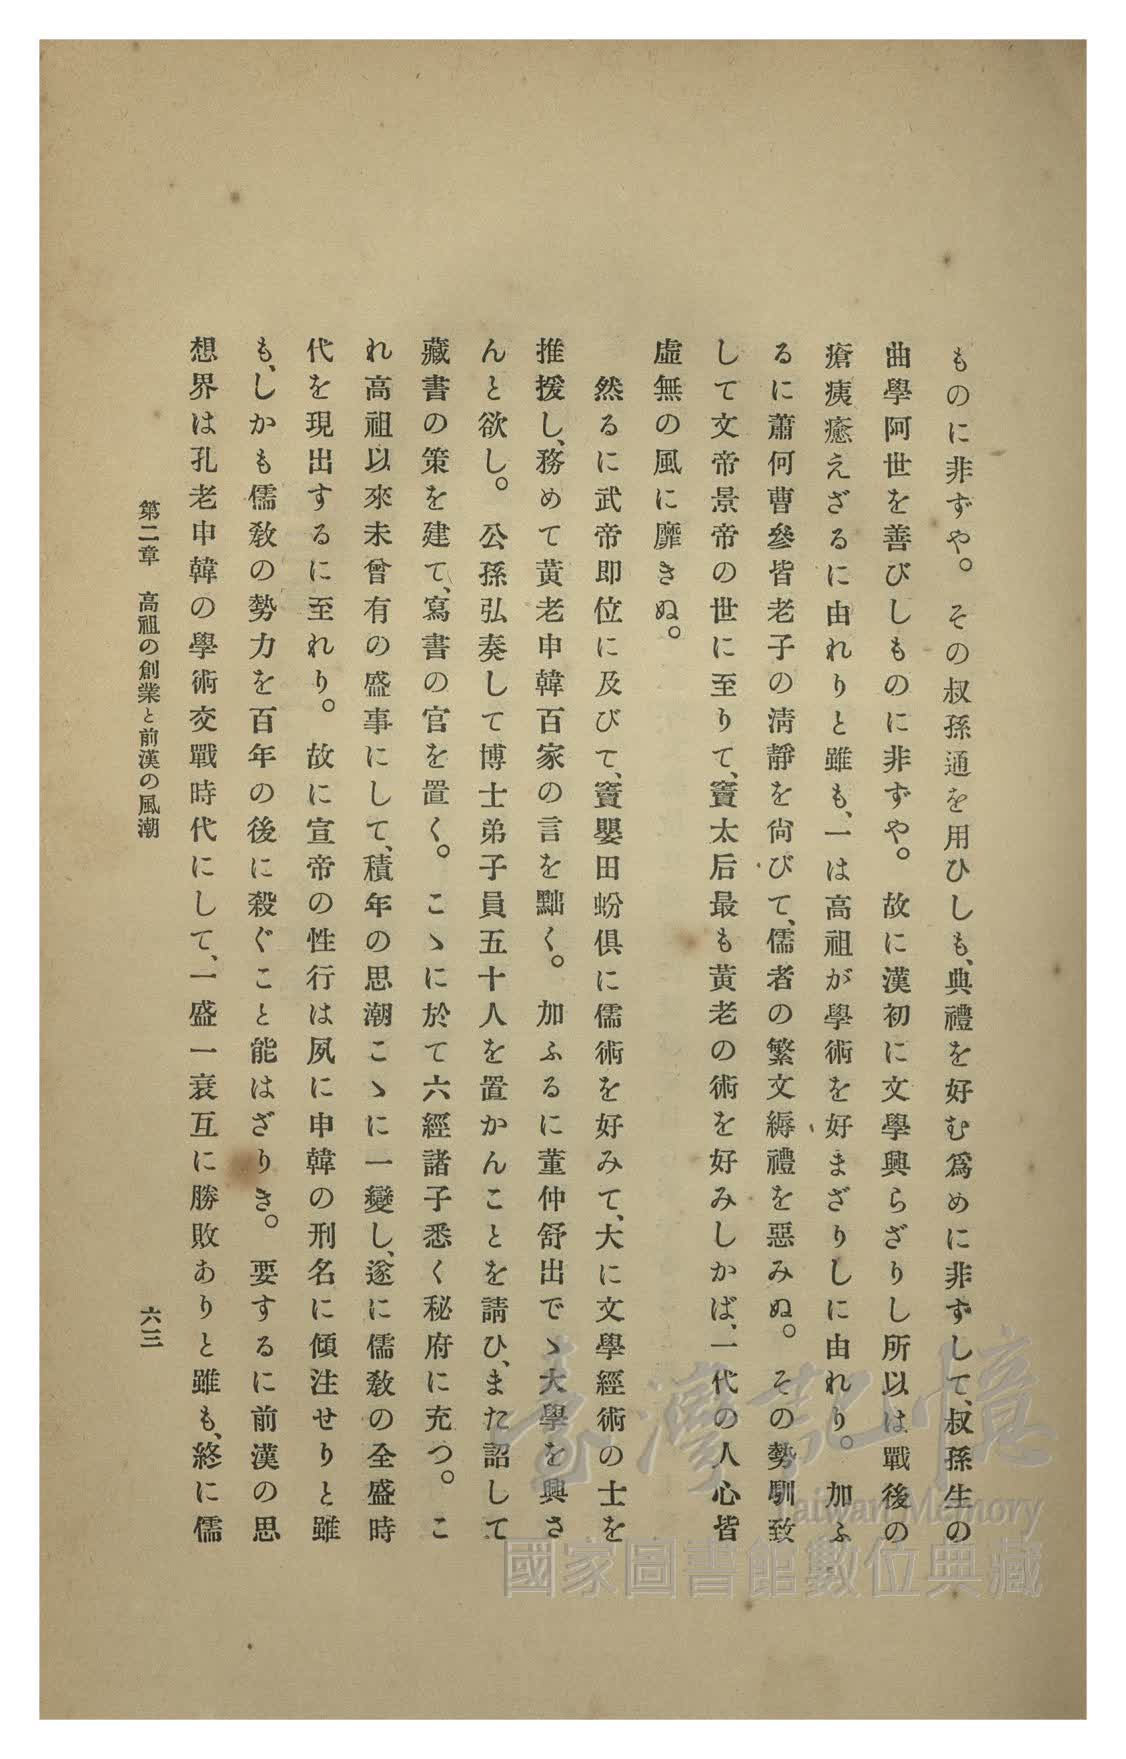 ものに非ずや。その叔孫通を用ひしも、典禮を好む爲めに非ずして、叔孫生の
曲學阿世を善びしものに非ずや。故に漢初に文學興らざりし所以は戰後の
瘡痍癒えざるに由れりと雖も、一は高祖が學術を好まざりしに由れり。加ふ
るに蕭何曹參皆老子の淸靜を尙びて、儒者の繁文縟禮を惡みぬ。その勢馴致
して文帝景帝の世に至りて、竇太后最も黃老の術を好みしかば、一代の人心皆
虛無の風に靡きぬ。
然るに武帝即位に及びて、竇嬰田蚡俱に儒術を好みて、大に文學經術の士を
推援し、務めて黃老申韓百家の言を黜く。加ふるに董仲舒出でゝ大學を興さ
んと欲し。公孫弘奏して博士弟子員五十人を置かんことを請ひ、また詔して
藏書の策を建て、寫書の官を置く。こゝに於て六經諸子悉く秘府に充つ。こ
れ高祖以來未曾有の盛事にして、積年の思潮こゝに一變し、遂に儒敎の全盛時
代を現出するに至れり。故に宣帝の性行は夙に申韓の刑名に傾注せりと雖
も、しかも儒敎の勢力を百年の後に殺ぐこと能はざりき。要するに前漢の思
想界は孔老申韓の學術交戰時代にして、一盛一衰互に勝敗ありと雖も、終に儒
第二章 高祖の創業と前漢の風潮
六三
臺灣記憶
Taiwan Memory
國家圖書館數位典藏